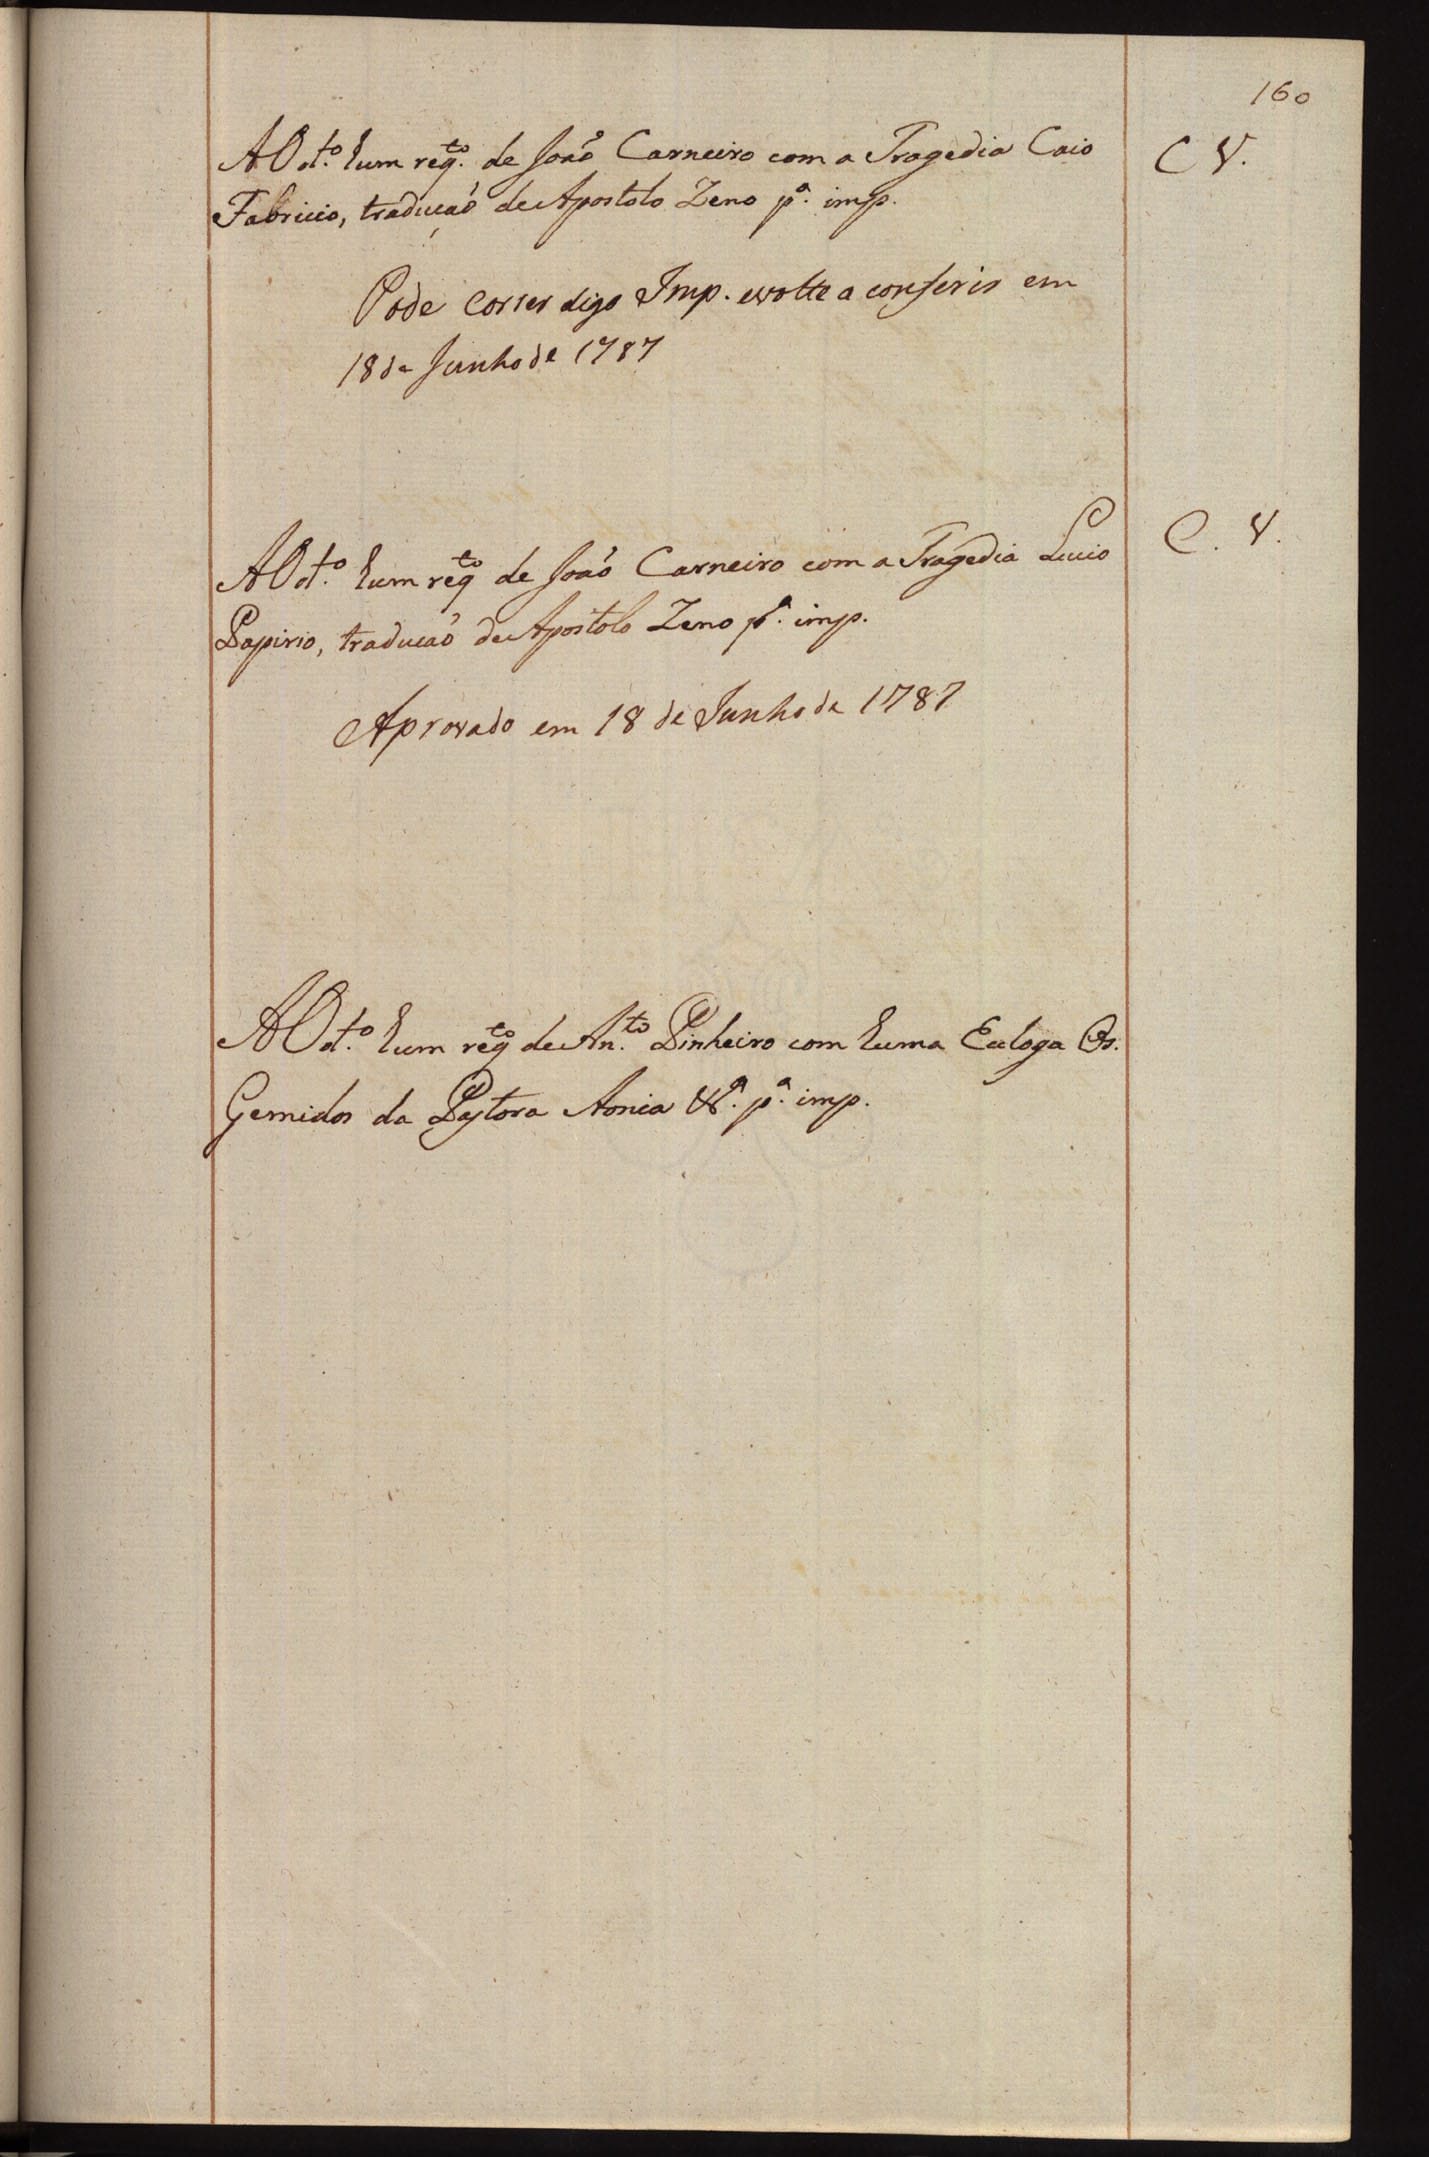 160
AO d.º hum req.to de Joaõ Carneiro com a Tragedia Caio
C V.
Fabricio, traduçaõ de Apostolo Zeno p.ª imp.
Pode correr digo Imp. e volte a conferir em
18 de Junho de 1787
AO d.º hum req.to de Joaõ Carneiro com a Tragedia Lucio
C. V.
Papirio, traduçaõ de Apostolo Zeno p.ª imp.
Aprovado em 18 de Junho de 1787
AO d.º hum req.to de An.to Pinheiro com huma Ecloga Os.
Gemidos da Pastora Aonia &.ª p.ª imp.